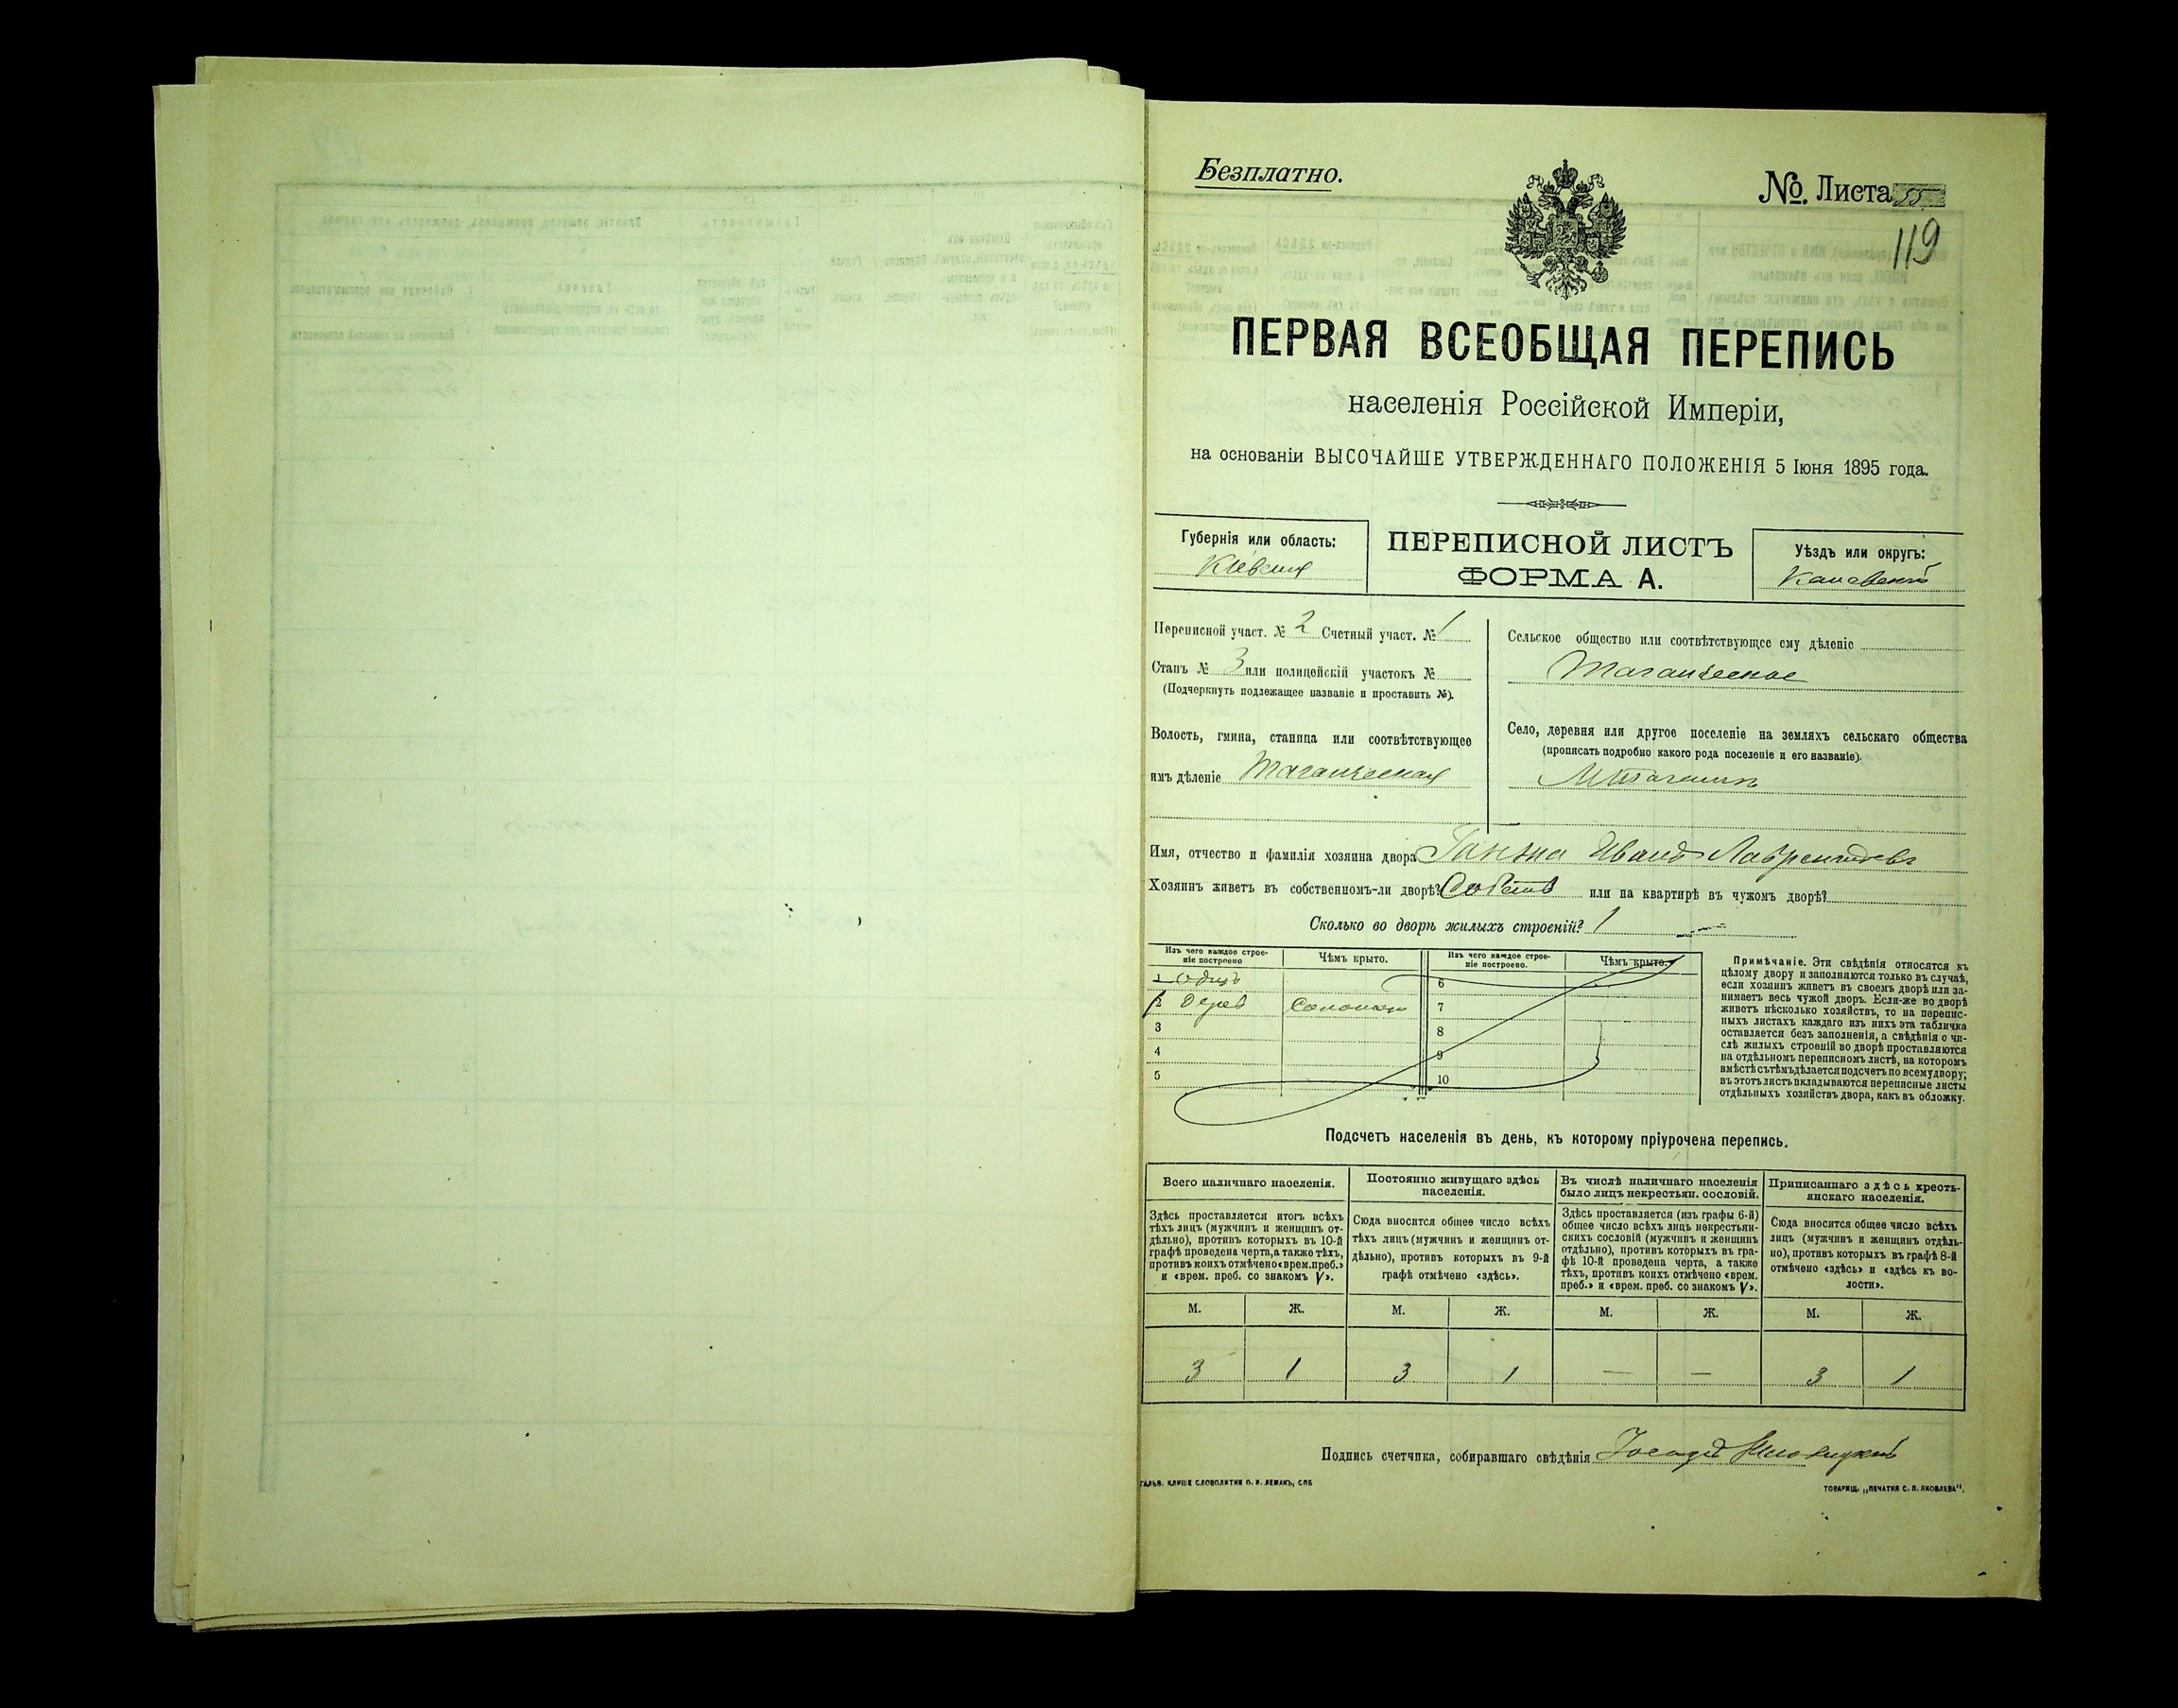 Безплатно.
№. Листа 55
119
ПЕРВАЯ ВСЕОБЩАЯ ПЕРЕПИСЬ
населенія Россійской Имперіи,
на основаніи ВЫСОЧАЙШЕ УТВЕРЖДЕННАГО ПОЛОЖЕНІЯ 5 Іюня 1895 года.
Губернія или область:
Кіевская
ПЕРЕПИСНОЙ ЛИСТЪ
ФОРМА А.
Уѣздъ или округъ:
Каневскій
Переписной участ. № 2 Счетный участ. № 1
Станъ № 3 или полицейскій участокъ №
(Подчеркнуть подлежащее названіе и проставить №).
Волость, гмина, станица или соотвѣтствующее
имъ дѣленіе Таганчская
Сельское общество или соотвѣтствующее ему дѣленіе
Таганчское
Село, деревня или другое поселеніе на земляхъ сельскаго общества
(прописать подробно какого рода поселеніе и его названіе).
Имя, отчество и фамилія хозяина двора Иванъ Лаврентьевъ
Хозяинъ живетъ въ собственномъ-ли дворѣ? Собств или на квартирѣ въ чужомъ дворѣ?
Сколько во дворѣ жилыхъ строеній? 1
Изъ чего каждое строе-
ніе построено
Чѣмъ крыто.
Изъ чего каждое строе-
ніе построено.
Чѣмъ крыто.
1 одно
6
2 Дерев Соломою
7
3
8
4
9
5
10
Примѣчаніе. Эти свѣдѣнія относятся къ
цѣлому двору и заполняются только въ случаѣ,
если хозяинъ живетъ въ своемъ дворѣ или за-
нимаетъ весь чужой дворъ. Если-же во дворѣ
живетъ нѣсколько хозяйствъ, то на перепис-
ныхъ листахъ каждаго изъ нихъ эта табличка
оставляется безъ заполненія, а свѣдѣнія о чи-
слѣ жилыхъ строеній во дворѣ проставляются
на отдѣльномъ переписномъ листѣ, на которомъ
вмѣстѣ съ тѣмъ дѣлается подсчетъ по всему двору;
въ этотъ листъ вкладываются переписные листы
отдѣльныхъ хозяйствъ двора, какъ въ обложку.
Подсчетъ населенія въ день, къ которому пріурочена перепись.
Всего наличнаго населенія.
Постоянно живущаго здѣсь
населенія.
Въ числѣ наличнаго населенія
было лицъ некрестьян. сословій.
Приписаннаго здѣсь кресть-
янскаго населенія.
Здѣсь проставляется итогъ всѣхъ
тѣхъ лицъ (мужчинъ и женщинъ от-
дѣльно), противъ которыхъ въ 10-й
графѣ проведена черта, а также тѣхъ,
противъ коихъ отмѣчено «врем. преб.»
и «врем. преб. со знакомъ V».
Сюда вносится общее число всѣхъ
тѣхъ лицъ (мужчинъ и женщинъ от-
дѣльно), противъ которыхъ въ 9-й
графѣ отмѣчено «здѣсь».
Здѣсь проставляется (изъ графы 6-й)
общее число всѣхъ лицъ некрестьян-
скихъ сословій (мужчинъ и женщинъ
отдѣльно), противъ которыхъ въ гра-
фѣ 10-й проведена черта, а также
тѣхъ, противъ коихъ отмѣчено «врем.
преб.» и «врем. преб. со знакомъ V».
Сюда вносится общее число всѣхъ
лицъ (мужчинъ и женщинъ отдѣль-
но), противъ которыхъ въ графѣ 8-й
отмѣчено «здѣсь» и «здѣсь къ во-
лости».
М. Ж. М. Ж. М. Ж. М. Ж.
3 1 3 1 — — 3 1
Подпись счетчика, собиравшаго свѣдѣнія
ГАЛЬВ. КЛИШЕ СЛОВОЛИТНИ О. И. ЛЕМАНЪ, СПБ
ТОВАРИЩ. „ПЕЧАТНЯ С. П. ЯКОВЛЕВА".